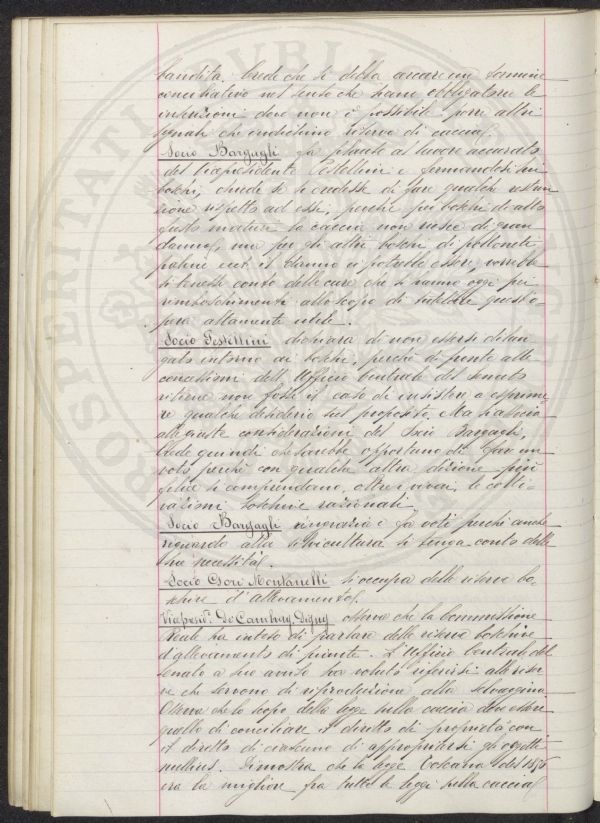 bandita. Crede che si debba cercare un termine
conciliativo nel senso che siano obbligatorie le
iscrizioni dove non è possibile porre altri
segnali che indichino riserva di caccia.
Socio Bargagli fa plauso al lavoro accurato
del Vicepresidente e fermandosi sui
boschi, chiede se si credesse di fare qualche restri
zione rispetto ad essi, perchè pei boschi di alto
fusto maturi la caccia non riesce di gran
danno, ma per gli altri boschi di pollonete,
paline ecc. il danno ci potrebbe essere, vorrebbe
si tenesse conto delle cure che si vanno oggi pei
rimboschimenti allo scopo di tutelare quest'o-
pera altamente utile.
Socio Pestellini dichiara di non essersi dilun-
gato intorno ai boschi, perchè di fronte alle
concessioni dell'Ufficio Centrale del Senato
ritiene non fosse il caso di insistere a esprime
re qualche desiderio sul proposito. Ma si associa
alle giuste considerazioni del Socio Bargagli,
crede quindi che sarebbe opportuno di fare un
voto perchè con qualche altra dizione più
felice si comprendano, oltre i vivai, le colti-
vazioni boschive razionali.
Socio Bargagli ringrazia e fa voti perchè anche
riguardo alla silvicultura si tenga conto delle
sue necessità.
Socio Gori Montanelli si occupa delle riserve bo-
schive d'allevamento.
Vicepresid. De Cambray Digny osserva che la Commissione
Reale ha inteso di parlare delle riserve boschive
d'allevamento di piante. L'Ufficio Centrale del
Senato a suo avviso ha voluto riferirsi alle riser
ve che servono di riproduzione alla selvaggina.
Osserva che lo scopo della legge sulla caccia deve essere
quello di conciliare il diritto di proprietà con
il diritto di ciascuno di appropriarsi gli oggetti
nullius. Dimostra che la legge Toscana del 1856
era la migliore fra tutte le leggi sulla caccia